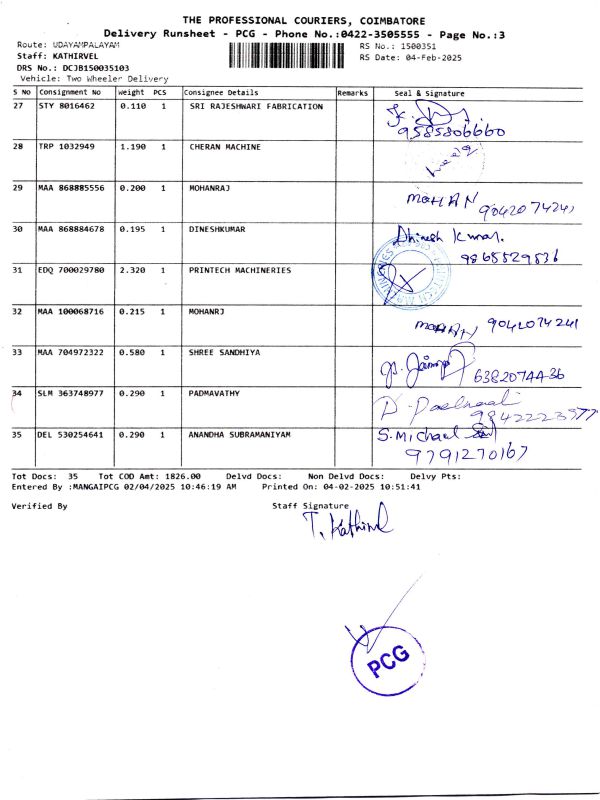 THE PROFESSIONAL COURIERS, COIMBATORE
Delivery Runsheet - PCG - Phone No.:0422-3505555 - Page No.:3
Route: UDAYAMPALAYAM RS No.: 1500351
Staff: KATHIRVEL RS Date: 04-Feb-2025
DRS No.: DCJB150035103
Vehicle: Two Wheeler Delivery
S No Consignment No Weight PCS Consignee Details Remarks Seal & Signature
27 STY 8016462 0.110 1 SRI RAJESHWARI FABRICATION
9585806660
28 TRP 1032949 1.190 1 CHERAN MACHINE
29 MAA 868885556 0.200 1 MOHANRAJ MOHAN 9042074241
30 MAA 868884678 0.195 1 DINESHKUMAR Dhinesh Kumar.
9865529836
31 EDQ 700029780 2.320 1 PRINTECH MACHINERIES
32 MAA 100068716 0.215 1 MOHANRJ MOHAN 9042074241
33 MAA 704972322 0.580 1 SHREE SANDHIYA
6382074436
34 SLM 363748977 0.290 1 PADMAVATHY
9842223577
35 DEL 530254641 0.290 1 ANANDHA SUBRAMANIYAM S. Michael
9791270167
Tot Docs: 35 Tot COD Amt: 1826.00 Delvd Docs: Non Delvd Docs: Delvy Pts:
Entered By :MANGAIPCG 02/04/2025 10:46:19 AM Printed On: 04-02-2025 10:51:41
Verified By Staff Signature
T. Kathirvel
PCG